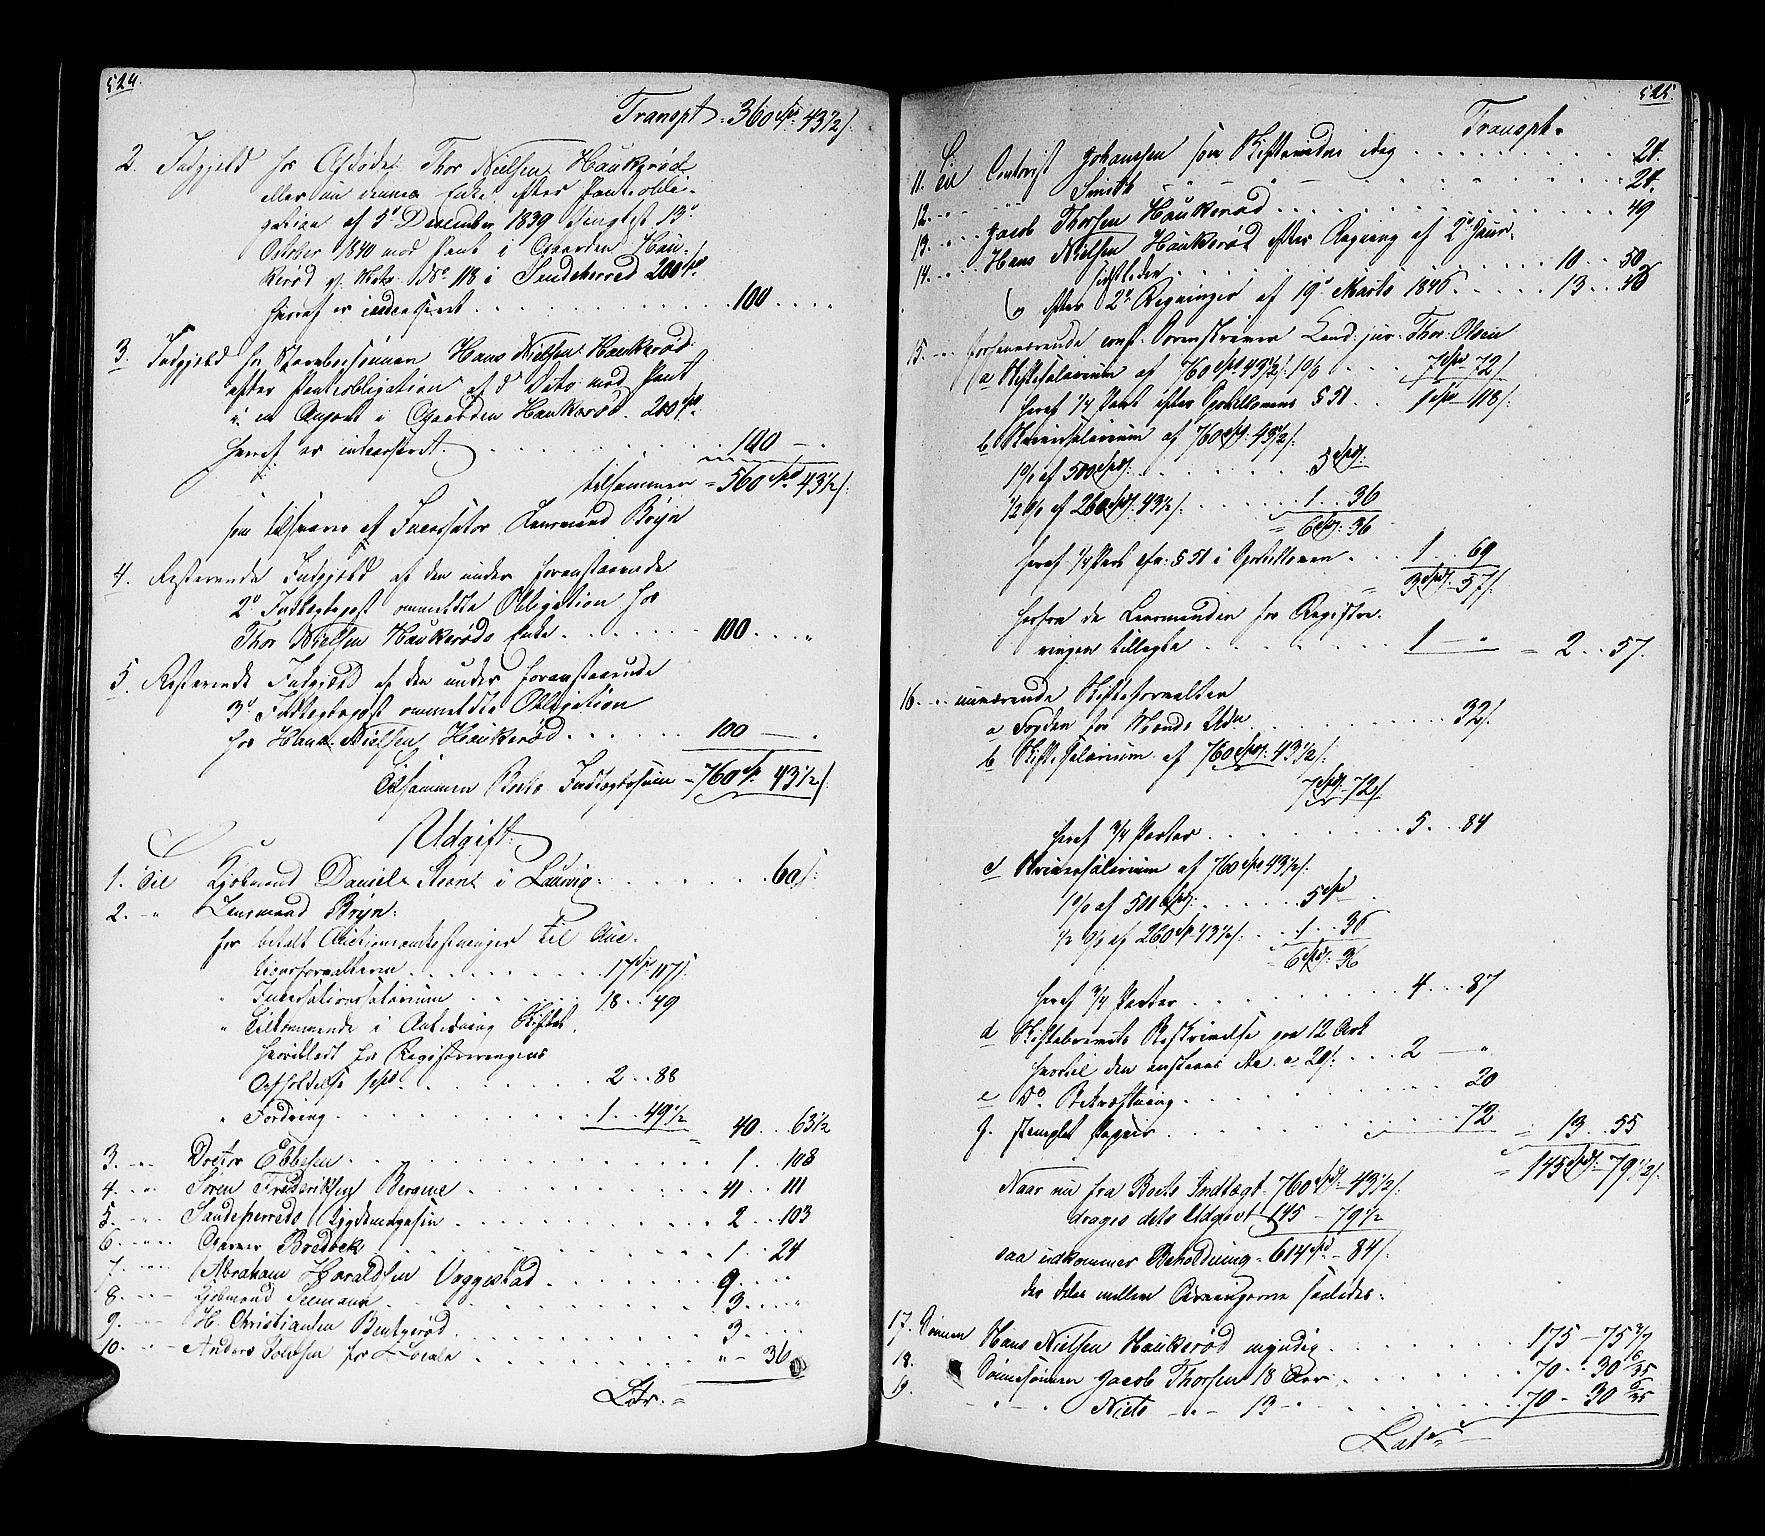 524.
Transpt. 360 Spd. 43½ s.
2. Indgjeld hos Afdøde Thor Nielsen Haukerød
eller nu dennes Enke efter Pantobli-
gation af 5te December 1839 tinglæst 13de
October 1840 mod Pant i Gaarden Hau-
kerød Matr. No 118 i Sandeherred 200 Spd
heraf er indcasseret . . . 100 . . . "
3. Indgjeld hos Stervbosønnen Hans Nielsen Haukerød
efter Pantobligation af do Dato mod Pant
i en Anpart i Gaarden Haukerød 200 Spd.
heraf er indcasseret . . . 100 — .
tilsammen = 560 Spd 43½ s.
som tilsvares af Incassator Lensmand Bryn
4. Resterende Indgjeld af den under foranstaaende
2den Indtægtspost ommeldte Obligation hos
Thor Nielsen Haukerøds Enke . . . 100 . . . "
5. Resterende Indgjeld af den under foranstaaende
3die Indtægtspost ommeldte Obligation
hos Hans Nielsen Haukerød . . . 100 — .
Tilsammen Boets Indtægtssum — 760 Spd. 43½ s.
Udgift.
1. Til Kjøbmand Daniel Steen i Laurvig . . . 60 s.
2. — " Lensmand Bryn:
for betalt Auctionsomkostninger til Auc-
tionsforvalteren . . . 17 Spd 117 s.
" Incassationssalarium . . . 18 . . 49
" Tilkommende i Anledning Skiftet,
heriblandt for Registreringens
Afholdelse 1 Spd . . . 2 . . 88
" Fordring . . . 1 . . 49½
= 40 . . 63½
3. — " Doctor Ebbesen . . . 1 . . 108
4. — " Søren Frederiksen Bergene . . . 41 . . 111
5. — " Sandeherreds Bygdemagasin . . . 2 . . 103
6 — " Garver Bredoek . . . 1 . . 24
7. — " Abraham Haraldsen Vaggestad . . . 9 . . . "
8. — " Kjøbmand Seemann . . . 3 . . . "
9. — " H. Christiansen Bentserød . . . 3 . . .
10. — " Anders Tolvsen for Locale . . . " — 30
Ltr. =
525.
Transpt.
11. Til Contorist Johannsen som Skiftevidne idag . . . 24.
12. — " Smith " " . . . 24.
13. — " Jacob Thorsen Haukerød . . . 49
14. — " Hans Nielsen Haukerød efter Regning af 2den Januar
sidstleden . . . 10 . . 50
" efter 2de Regninger af 19de Marts 1846 . . . 13 . . 48
15. — " forhenværende const. Sorenskriver Cand: jur: Thor Olsen
a Skiftesalarium af 760 Spd 43½ s. 1% . . . 7 Spd — 72 s.
heraf ¼ Part efter Sportellovens § 51 . . 1 Spd — 118 s.
b Skriversalarium af 760 Spd. 43½ s.
1% af 500 Spd. . . . 5 Spd.
½ % af 260 Spd. 43½ s. . . . 1 . . 36
= 6 Spd. 36
heraf ¼ Part cfr. § 51 i Sportelloven . . . 1 . . 69
= 3 Spd. 57 s.
herfra de Lensmanden for Registre-
ringen tillagte . . . 1 — " = 2 . . 57.
16. — " nuværende Skifteforvalter
a Fogden for Mands Udn. . . . 32 s.
b Skiftesalarium af 760 Spd. 43½ s.
7 Spd. 72 s.
heraf ¾ Parter . . . 5 . . 84
c Skriversalarium af 760 Spd 43½ s.
1% af 500 Spd. . . . 5 Spd — .
½ % af 260 Spd. 43½ s. . . 1 . . 36
= 6 Spd. 36
heraf ¾ Parter . . . 4 . . 87
d Skiftebrevets Beskrivelse paa 12 Ark
hvortil den ansteres a 20 s. . . . 2 — "
e Do. Bekræftning . . . 20
f. stemplet Papir . . . 72 = 13 . . 55
= 145 Spd. — 79½ s.
Naar nu fra Boets Indtægt 760 Spd. — 43½ s.
drages dets Udgivt 145 — 79½
saa udkommer Beholdning — 614 Spd — 84 s.
der deles mellem Arvingerne saaledes:
17. Sønnen Hans Nielsen Haukerød myndig . . . 175 — 75 3/7
18. Sønnesønnen Jacob Thorsen 18 Aar . . . 70 . . 30 6/35
19. — " — Niels — " — 13 — " . . . 70 — 30 6/35
Lats =